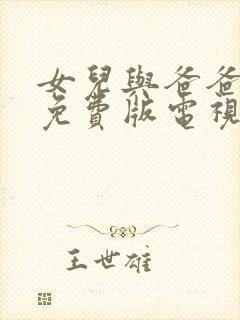 女兒與爸爸
免費版電視
王世雄